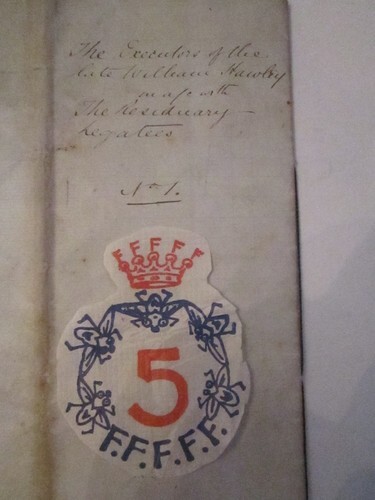 The Executors of the
late William Hawley
in a/c with
The Residuary –
Legatees
No 1.
F F F F F
5
F.F.F.F.F.